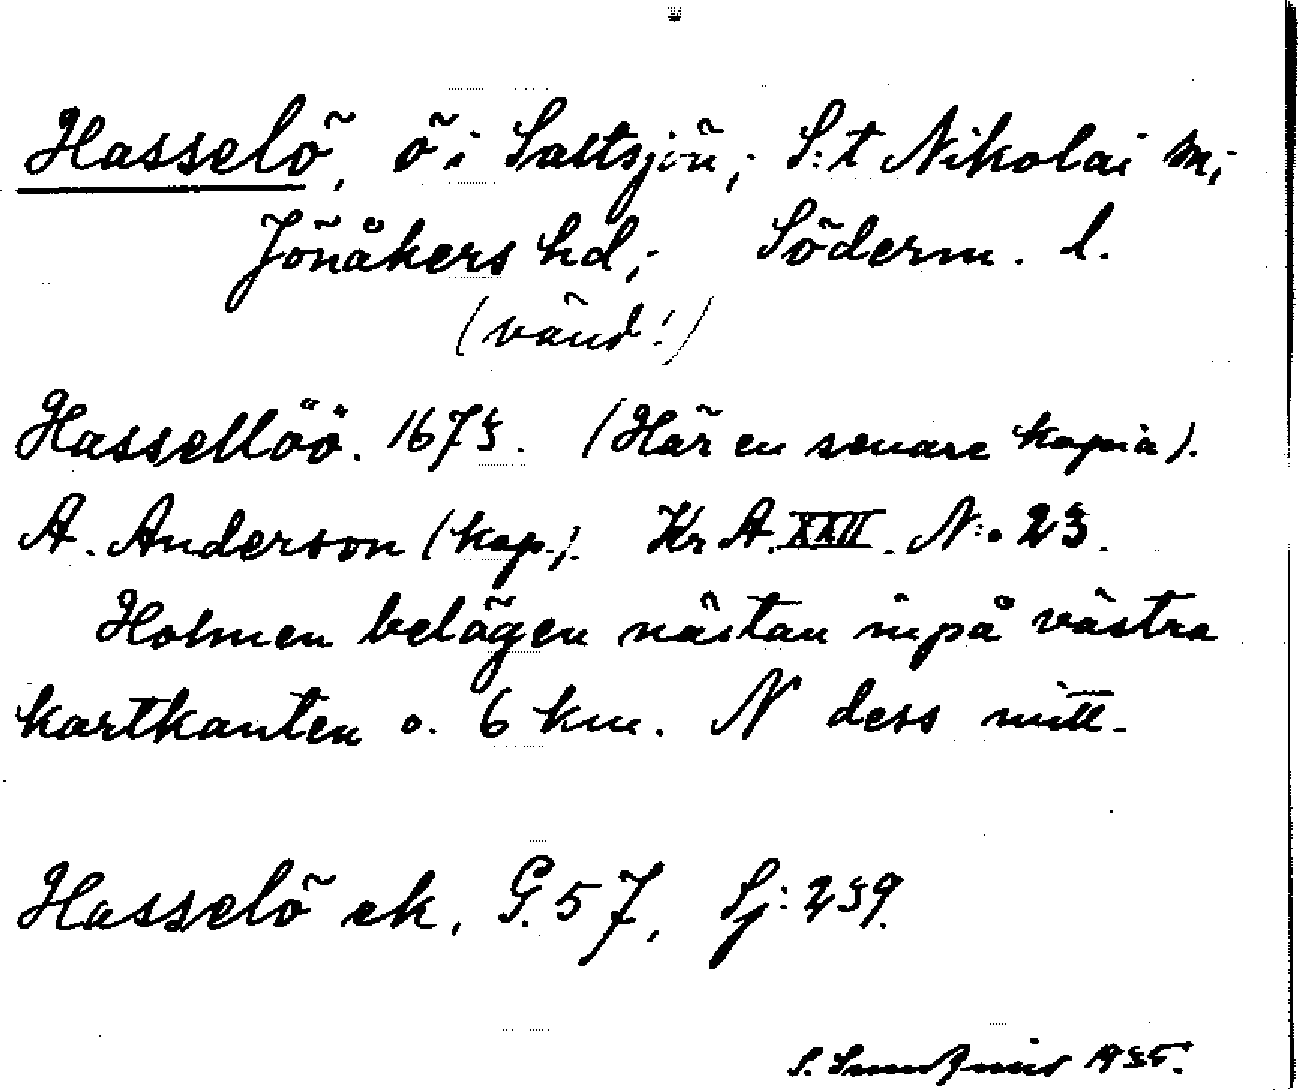 Hasselö, ö i Saltsjön; S:t Nikolai m;
Jönåkers hd; Söderm. l.
(vänd!)
Hassellöö. 1673. (Här en senare kopia).
A. Anderson (kop.). Kr. A. XXII. N:o 23.
Holmen belägen nästan inpå västra
kartkanten o. 6 km. N dess mitt.
Hasselö ek, G. 57, Sj: 239.
S. 1935.